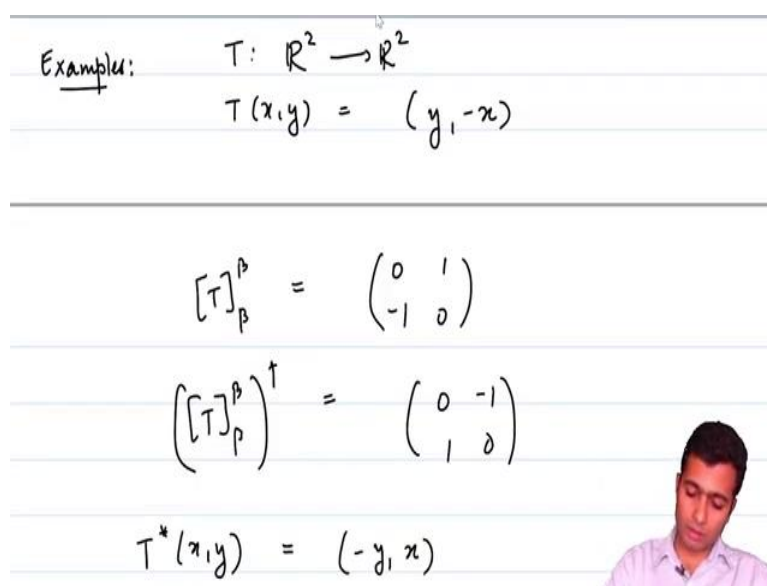 Examples: T: ℝ² ⟶ ℝ²
T(x,y) = (y, -x)
[T]_β^β = (0 1; -1 0)
([T]_β^β)^† = (0 -1; 1 0)
T*(x,y) = (-y, x)